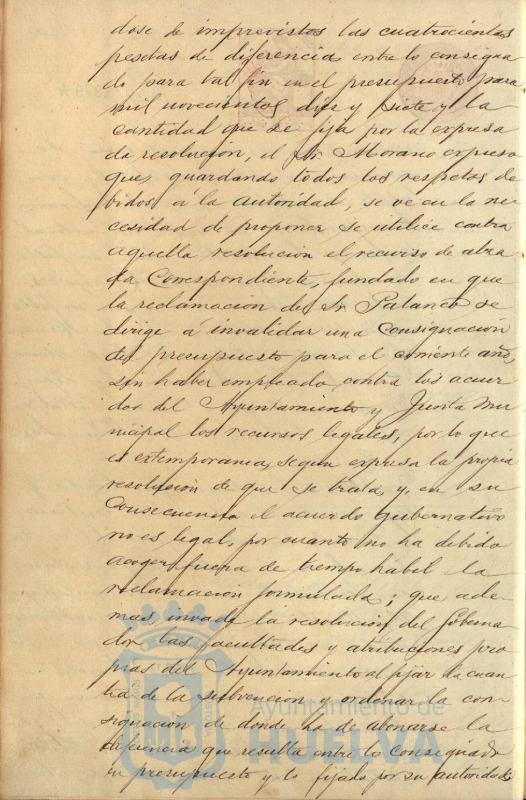 dose de imprevistos las cuatrocientas
pesetas de diferencia entre lo consigna
do para tal fin en el presupuesto para
mil novecientos diez y siete y la
cantidad que se fija por la expresa
da resolución, el Sr. Morano expuso
que, guardando todos los respetos de
bidos á la autoridad, se ve en la ne
cesidad de proponer se utilice contra
aquella resolución el recurso de alza
da correspondiente, fundado en que
la reclamación del Sr Palanco se
dirige á invalidar una consignación
del presupuesto para el corriente año,
sin haber empleado contra los acuer
dos del Ayuntamiento y Junta Mu
nicipal los recursos legales, por lo que
es extemporanea, segun expresa la propia
resolución de que se trata, y, en su
consecuencia el acuerdo gubernativo
no es legal, por cuanto no ha debido
acoger fuera de tiempo hábil la
reclamación formulada; que ade
mas, invade la resolución del Goberna
dor las facultades y atribuciones pro
pias del Ayuntamiento al fijar la cuan
tia de la subvención y ordenar la con
signación de donde ha de abonarse la
diferencia que resulta entre lo consignado
en presupuesto y lo fijado por su autoridad;
Ayuntamiento de
HUELVA